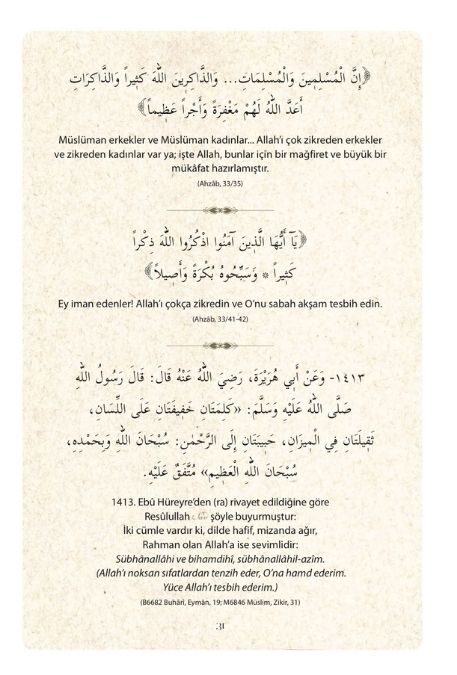 ﴿إِنَّ الْمُسْلِمِينَ وَالْمُسْلِمَاتِ... وَالذَّاكِرِينَ اللهَ كَثِيراً وَالذَّاكِرَاتِ
أَعَدَّ اللهُ لَهُمْ مَغْفِرَةً وَأَجْراً عَظِيماً﴾
Müslüman erkekler ve Müslüman kadınlar... Allah’ı çok zikreden erkekler
ve zikreden kadınlar var ya; işte Allah, bunlar için bir mağfiret ve büyük bir
mükâfat hazırlamıştır.
(Ahzâb, 33/35)
﴿يَآ أَيُّهَا الَّذِينَ آمَنُوا اذْكُرُوا اللهَ ذِكْراً
كَثِيراً * وَسَبِّحُوهُ بُكْرَةً وَأَصِيلاً﴾
Ey iman edenler! Allah’ı çokça zikredin ve O’nu sabah akşam tesbih edin.
(Ahzâb, 33/41-42)
١٤١٣- وَعَنْ أَبِي هُرَيْرَةَ، رَضِيَ اللهُ عَنْهُ قَالَ: قَالَ رَسُولُ اللهِ
صَلَّى اللهُ عَلَيْهِ وَسَلَّمَ: «كَلِمَتَانِ خَفِيفَتَانِ عَلَى اللِّسَانِ،
ثَقِيلَتَانِ فِي الْمِيزَانِ، حَبِيبَتَانِ إِلَى الرَّحْمٰنِ: سُبْحَانَ اللهِ وَبِحَمْدِهِ،
سُبْحَانَ اللهِ الْعَظِيمِ» مُتَّفَقٌ عَلَيْهِ.
1413. Ebû Hüreyre’den (ra) rivayet edildiğine göre
Resûlullah ﷺ şöyle buyurmuştur:
İki cümle vardır ki, dilde hafif, mizanda ağır,
Rahman olan Allah’a ise sevimlidir:
Sübhânallâhi ve bihamdihî, sübhânallâhil-azîm.
(Allah’ı noksan sıfatlardan tenzih eder, O’na hamd ederim.
Yüce Allah’ı tesbih ederim.)
(B6682 Buhârî, Eymân, 19; M6846 Müslim, Zikir, 31)
31